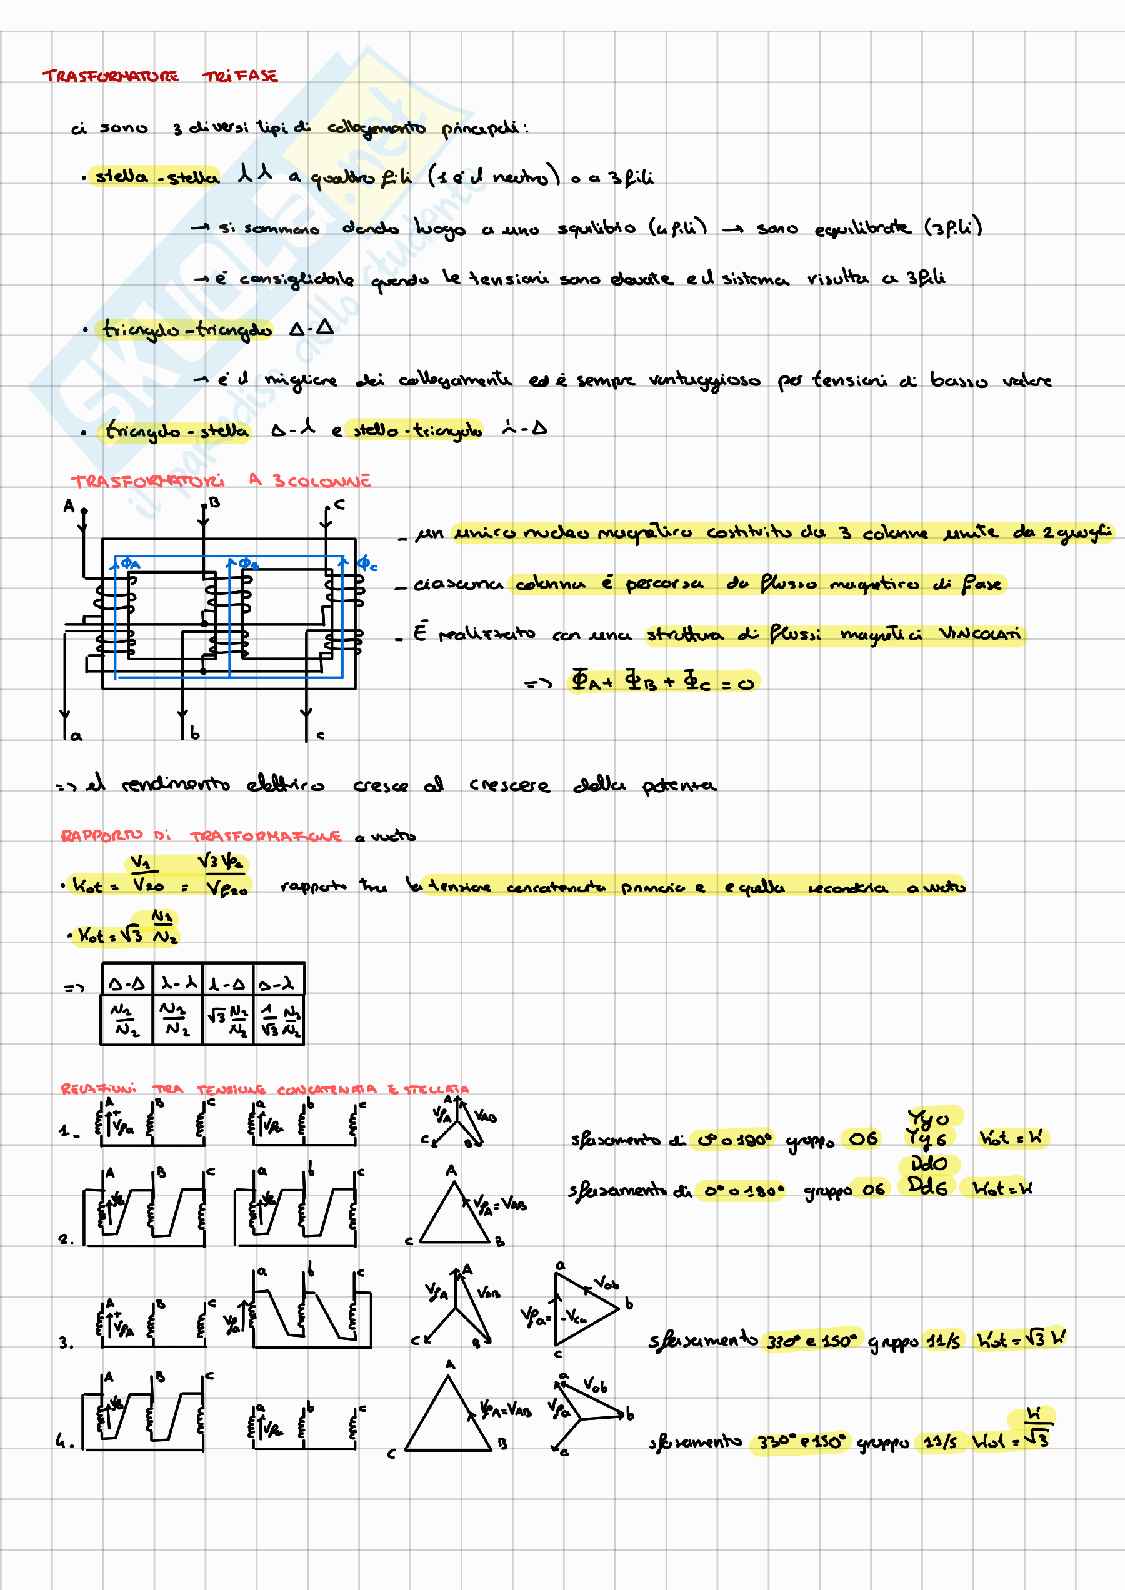 TRASFORMATORE TRIFASE
ci sono 3 diversi tipi di collegamento principali:
• stella-stella ⅄⅄ a quattro fili (1 è il neutro) o a 3 fili
→ si sommano dando luogo a uno squilibrio (4 fili) → sono equilibrate (3 fili)
→ è consigliabile quando le tensioni sono elevate e il sistema risulta a 3 fili
• triangolo-triangolo Δ-Δ
→ è il migliore dei collegamenti ed è sempre vantaggioso per tensioni di basso valore
• triangolo-stella Δ-⅄ e stella-triangolo ⅄-Δ
TRASFORMATORI A 3 COLONNE
A B C
ΦA ΦB ΦC
a b c
- un unico nucleo magnetico costituito da 3 colonne unite da 2 gioghi
- ciascuna colonna è percorsa da flusso magnetico di fase
- È realizzato con una struttura di flussi magnetici VINCOLATI
=> Φ̄A + Φ̄B + Φ̄C = 0
=> il rendimento elettrico cresce al crescere della potenza
RAPPORTO DI TRASFORMAZIONE a vuoto
• Kot = V1/V20 = √3 Vf1/Vf20 rapporto tra la tensione concatenata primaria e quella secondaria a vuoto
• Kot = √3 N1/N2
=> Δ-Δ ⅄-⅄ ⅄-Δ Δ-⅄
N1/N2 N1/N2 √3 N1/N2 1/√3 N1/N2
RELAZIONI TRA TENSIONE CONCATENATA E STELLATA
1. A B C VfA a b c Vfa A VfA VAB C B sfasamento di 0° o 180° gruppo 06 Yy0 Yy6 Kot = K
2. A B C a b c A VfA=VAB C B sfasamento di 0° o 180° gruppo 06 Dd0 Dd6 Kot = K
3. A B C VfA a b c Vfa A VfA VAB C B a Vab b Vfa= -Vca c sfasamento 330° e 150° gruppo 11/5 Kot = √3 K
4. A B C a b c Vfa A VfA=VAB C B a Vab Vfa b sfasamento 330° e 150° gruppo 11/5 Kot = K/√3
SKUOLA.net
il paradiso dello studente